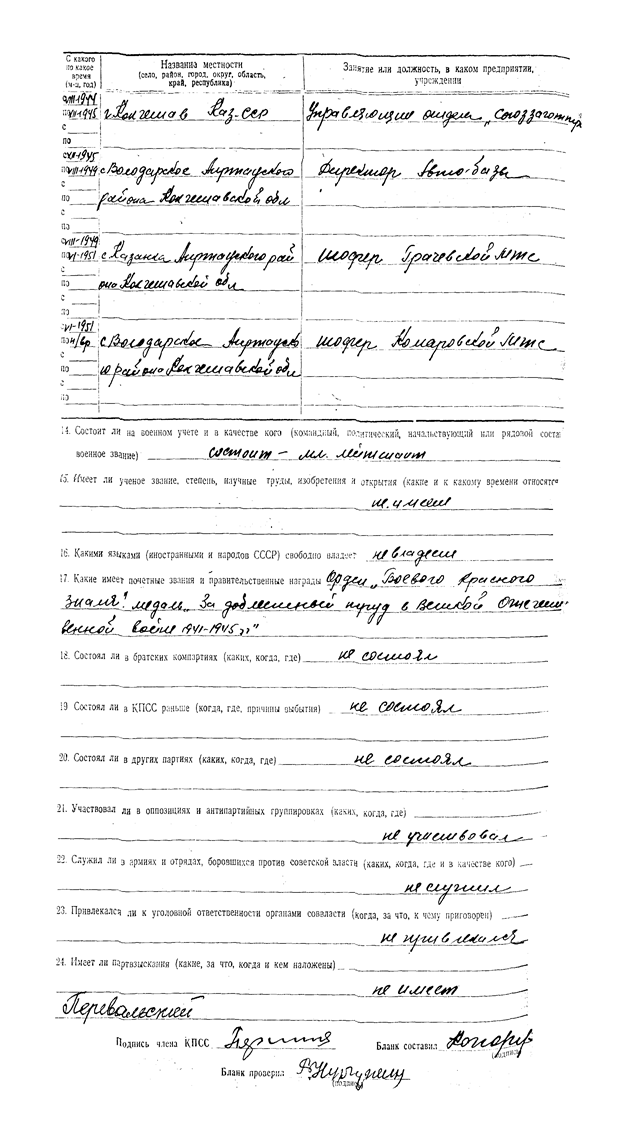 С какого по какое время (м-ц, год)
Название местности (село, район, город, округ, область, край, республика)
Занятие или должность, в каком предприятии, учреждении
VIII-1944
по XII 1945 г. Кокчетав Каз. ССР Управляющий отдела „Союззаготкир
с
по
с XII-1945
по VIII-1949 с Володарское Аиртауского Директор Авто-базы
с
по района Кокчетавской обл
с
по
VIII-1949
по VI-1951 с Казанка Аиртауского рай шофер Грачевской МТС
с
по она Кокчетавской обл
с
по
VI-1951
по н/вр. с Володарское Аиртауско шофер Комаровской МТС
с
по го района Кокчетавской обл
с
по
14. Состоит ли на военном учете и в качестве кого (командный, политический, начальствующий или рядовой соста
военное звание) состоит – мл. лейтенант
15. Имеет ли ученое звание, степень, научные труды, изобретения и открытия (какие и к какому времени относятся
не имеет
16. Какими языками (иностранными и народов СССР) свободно владеет не владеет
17. Какие имеет почетные звания и правительственные награды Орден „Боевого Красного
Знамя". медаль „За доблестный труд в Великой Отечест
венной войне 1941-1945 гг"
18. Состоял ли в братских компартиях (каких, когда, где) не состоял
19 Состоял ли в КПСС раньше (когда, где, причины выбытия) не состоял
20. Состоял ли в других партиях (каких, когда, где) не состоял
21. Участвовал ли в оппозициях и антипартийных группировках (каких, когда, где)
не участвовал
22. Служил ли в армиях и отрядах, боровшихся против советской власти (каких, когда, где и в качестве кого)
не служил
23. Привлекался ли к уголовной ответственности органами соввласти (когда, за что, к чему приговорен)
не привлекался
24. Имеет ли партвзыскания (какие, за что, когда и кем наложены)
не имеет
Перевальский
Подпись члена КПСС Бланк составил
(подпись)
Бланк проверил
(подпись)